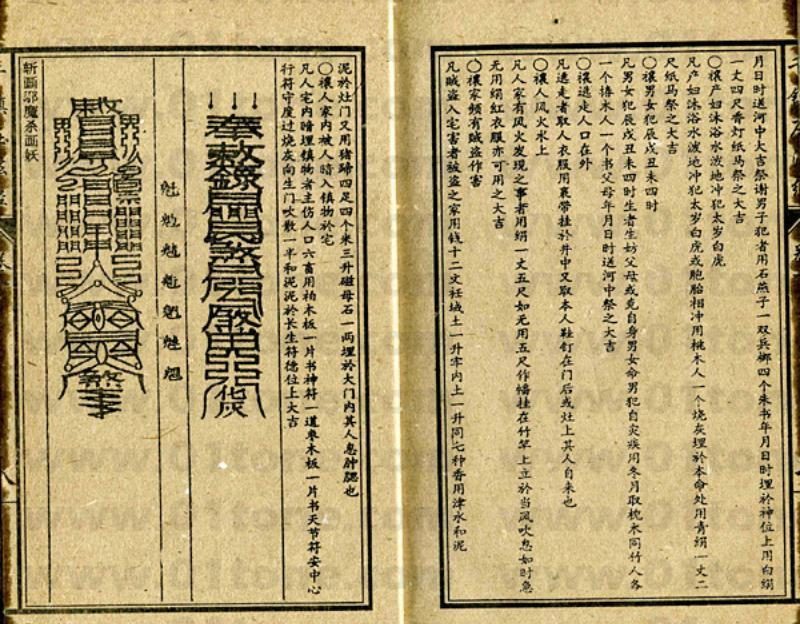 月日时送河中大吉祭谢男子犯者用石燕子一双兵榔四个朱书年月日时埋於神位上用白绢
一丈四尺香灯纸马祭之大吉
〇禳产妇沐浴水泼地冲犯太岁白虎
凡产妇沐浴水泼地冲犯太岁白虎或胞胎相冲用桃木人一个烧灰埋於本命处用青绢一丈二
尺纸马祭之大吉
〇禳男女犯辰戌丑未四时
凡男女犯辰戌丑未四时生者生妨父母或克自身男女命男犯自灾疾用冬月取枕木同竹人各
一个捧木人一个书父母年月日时送河中祭之大吉
〇禳逃走人口在外
凡逃走者取人衣服用裹带挂於井中又取本人鞋钉在门后或灶上其人自来也
〇禳人风火水上
凡人家有风火发现之事者用绢一丈五尺如无用五尺作幡挂在竹竿上立於当风吹息如时急
无用绢红衣服亦可用之大吉
〇禳家频有贼盗作害
凡贼盗入宅害者被盗之家用钱十二文妊域土一升牢内上一升同七种香用津水和泥
泥於灶门又用猪蹄四足四个米三升磁母石一两埋於大门内其人息肿腮也
〇禳人家内被人暗入镇物於宅
凡人宅内暗埋镇物者主伤人口六畜用柏木板一片书神符一道枣木板一片书天节符安中心
行符守度过烧灰向生门吹散一半和泥泥於长生符德位上大吉
奉敕
斩画邪魔杀画妖